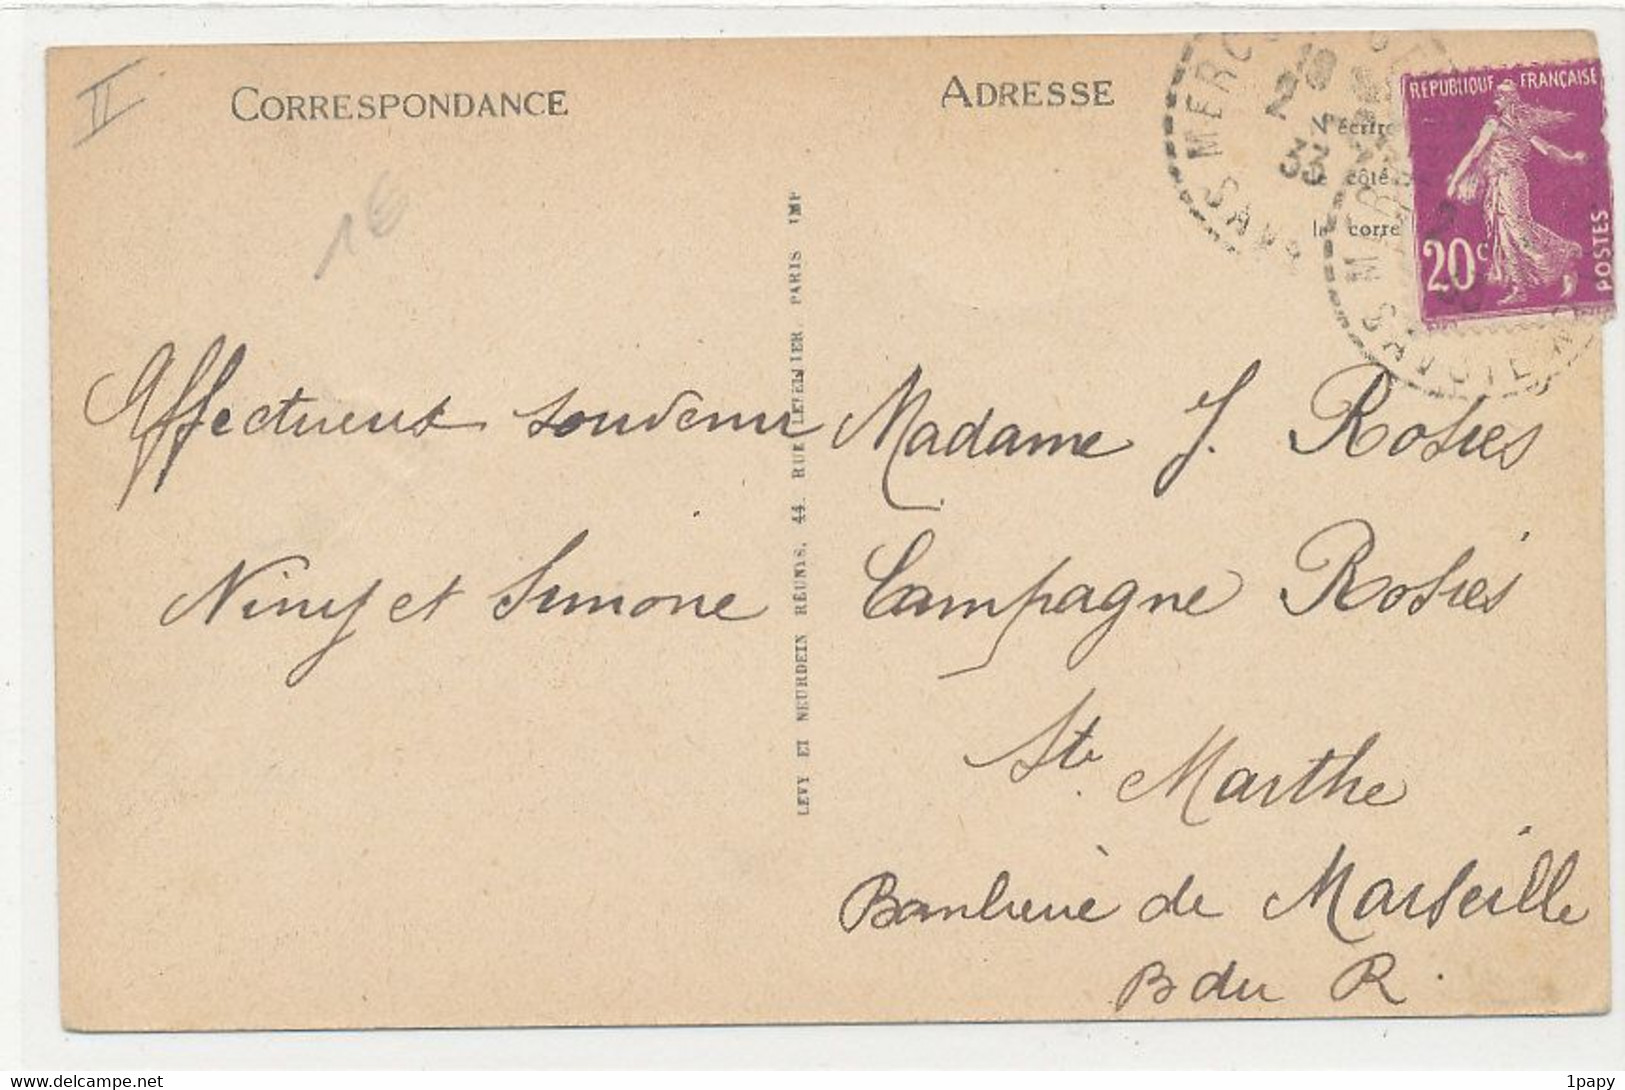 II
CORRESPONDANCE
1€
Affectueux souvenir
Niny et Simone
LEVY ET NEURDEIN RÉUNIS, 44. RUE LETELLIER, PARIS IMP
ADRESSE
N'écrire
le côté
la corre
MERC
SAVO
2
33
SAVOIE
REPUBLIQUE FRANÇAISE
20c
POSTES
Madame J. Rosies
Campagne Rosies
Ste Marthe
Banlieue de Marseille
B du R.
delcampe.net
1papy